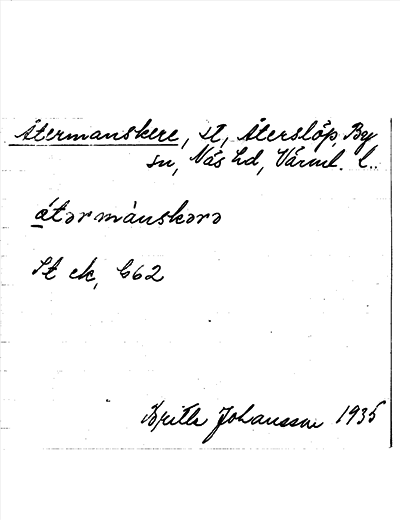 Återmanskere, st, Återslöp, By
sn, Näs hd, Värml. l.
åtərmànskərə
St ek, C62
Britta Johansson 1935